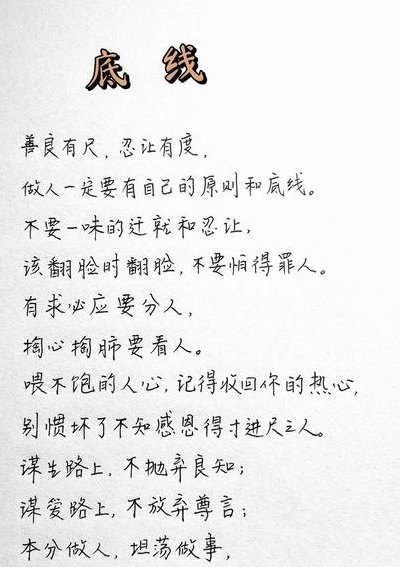 底线
善良有尺，忍让有度，
做人一定要有自己的原则和底线。
不要一味的迁就和忍让，
该翻脸时翻脸，不要怕得罪人。
有求必应要分人，
掏心掏肺要看人。
喂不饱的人心，记得收回你的热心，
别惯坏了不知感恩得寸进尺之人。
谋生路上，不抛弃良知；
谋爱路上，不放弃尊言；
本分做人，坦荡做事，